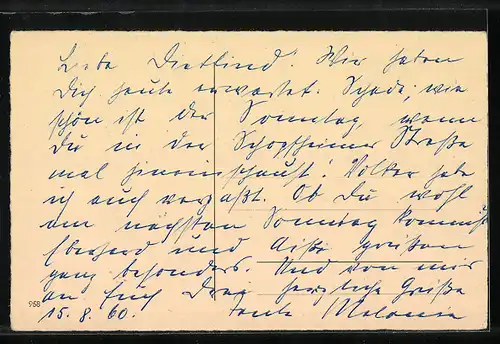 Liebe Dietlind! Wir haben
Dich heute erwartet. Schade, wie
schön ist der Sonntag, wenn
Du in der Schopfheimer Straße
mal hineinschaust! Volker habe
ich auch verpaßt. Ob Du wohl
am nächsten Sonntag kommst
Eberhard und grüßen
ganz besonders. Und von mir
an Euch Drei herzliche Grüße
15. 8. 60. Tante Melanie
958